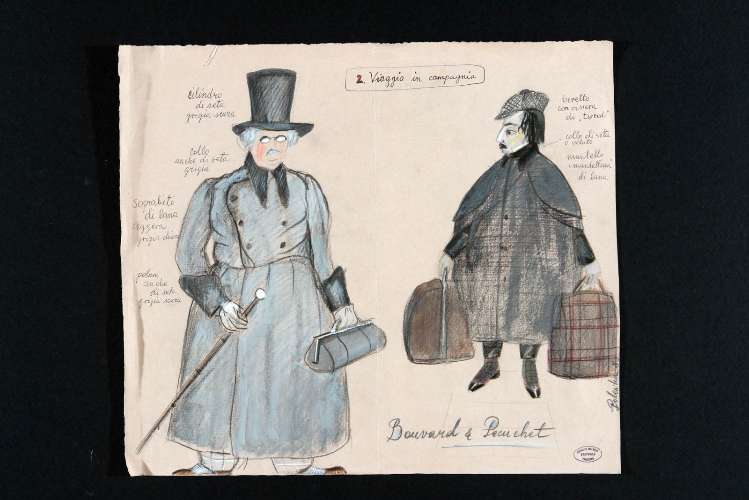 2. Viaggio in campagna
cilindro
di seta
grigia scura
collo
anche di seta
grigia
Soprabito
di lana
leggera
grigia
anche
di seta
grigia scura
beretto
con visiera
di „tweed"
collo di seta
o velluto
mantello
di lana
Bouvard & Pecuchet